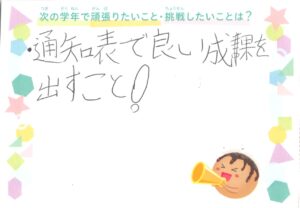 次の学年で頑張りたいこと・挑戦したいことは？
・通知表で良い成課を
出すこと!